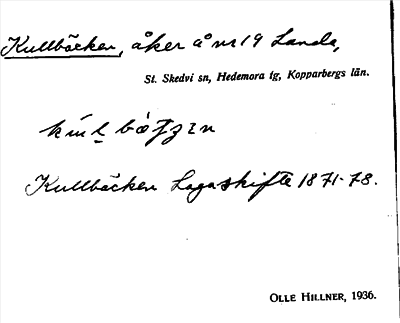 Kullbäcken, åker å nr 19 Landa,
St. Skedvi sn, Hedemora tg, Kopparbergs län.
Kullbäcken Lagaskifte 1871-78.
OLLE HILLNER, 1936.